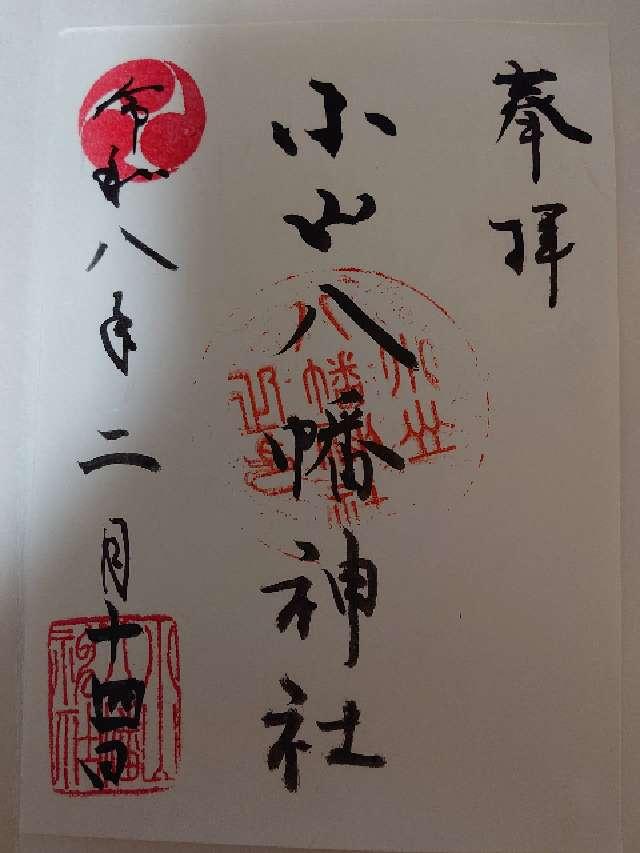 奉拝
小山八幡神社
令和八年二月十四日